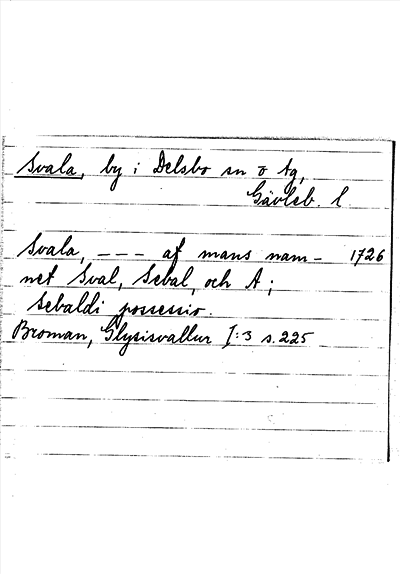 Svala, by i Delsbo sn o Ag,
Gävleb. l
Svala, --- af mans nam- 1726
net Sval, Sebal, och A;
Sebaldi possessio.
Broman, Glysisvallur I:3 s. 225